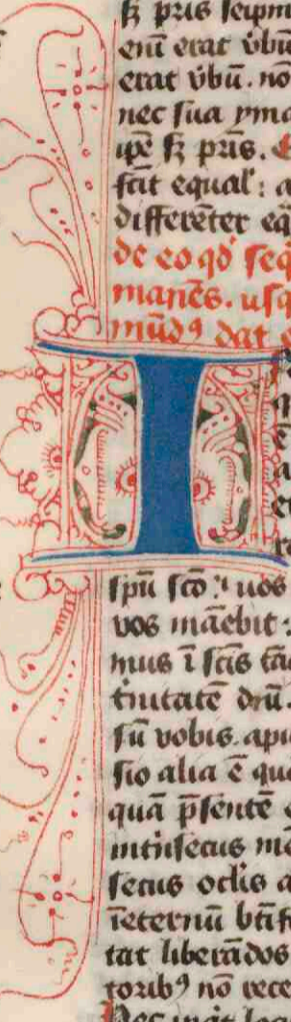 s; pr̄is seipm
eni̅ erat v̇bu̅
erat v̇bu̅. no
nec sua yma
ip̄e s; pr̄is.
scit equal': a
differe̅ter eq
de eo qd̕ seq
mane̅s. usq
mu̅dꝰ dat
I
spu̅ sc̄o: uos
vos ma̅ebit:
mus i̅ sc̄is
tinitate̅ dn̄i.
su̅ vobis. apu
sio alia e̅ qua
qua̅ p̄sente̅
intrisecus me
secus oclis a
i̅eternu̅ bt̄if
tat libera̅dos
toribꝰ no̅ rece